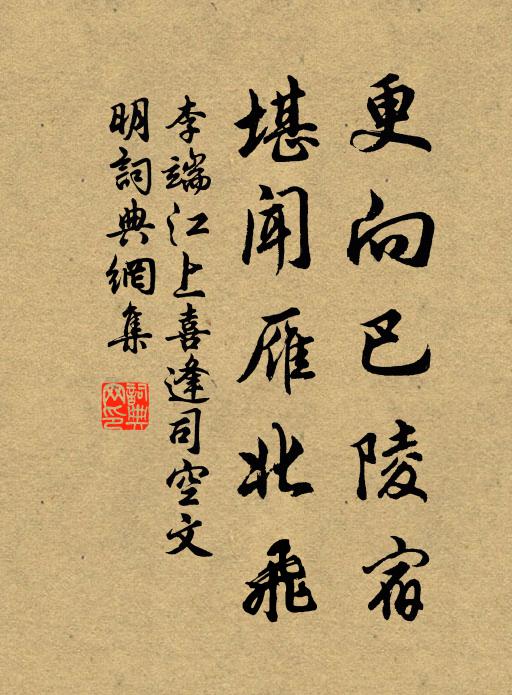 更向巴陵宿
堪闻雁北飛
李端江上喜逢司空文
明詞典網集
詞典
网印